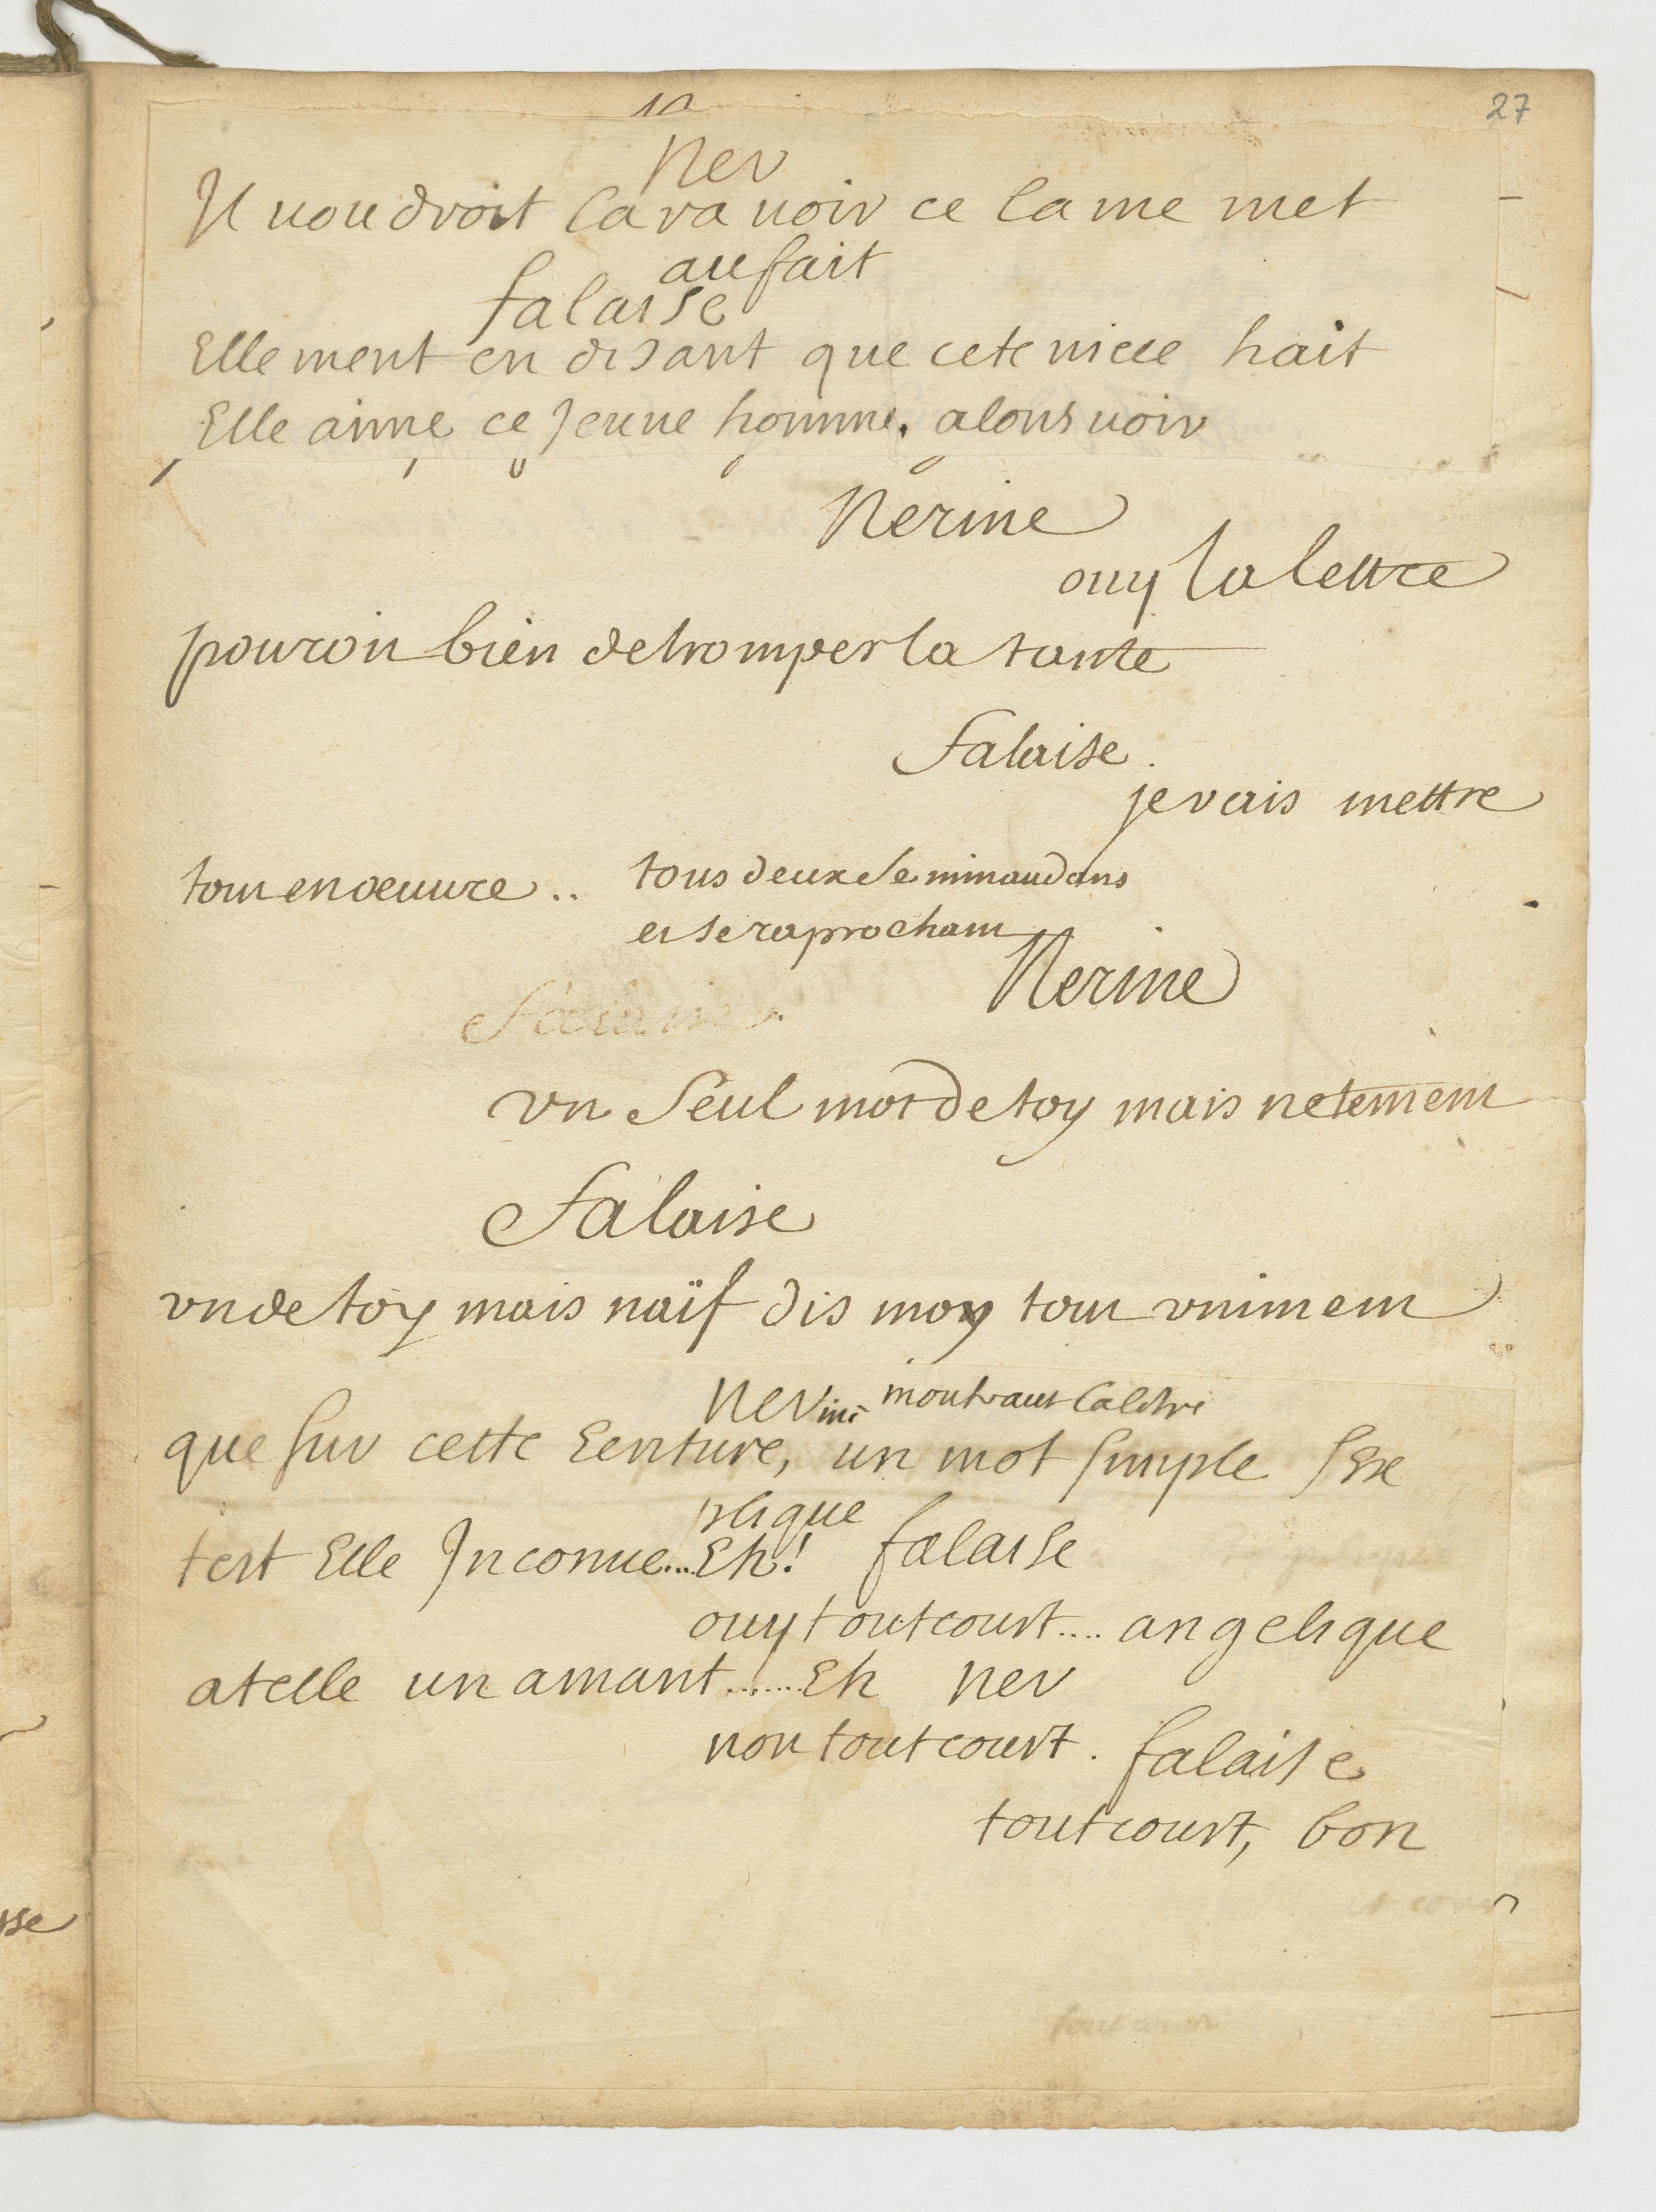 27
Ner
Il voudroit la ravoir ce la me met
au fait
falaise
Elle ment en disant que cete niece hait
Elle aime ce Jeune homme. alons voir
Nerine
ouy la lettre
pouroit bien detromper la tante
falaise.
je vais mettre
tout en oeuvre ..
tous deux se minaudans
et se raprochant
Nerine
un seul mot de toy mais netement
falaise
un de toy mais naïf dis moy tout uniment
Nerine montrant la letre
que sur cette Ecriture, un mot simple s'ex
plique
test Elle Inconue... Eh! falaise
ouy tout court.... angelique
atelle un amant ....... Eh ner
non tout court. falaise
tout court, bon